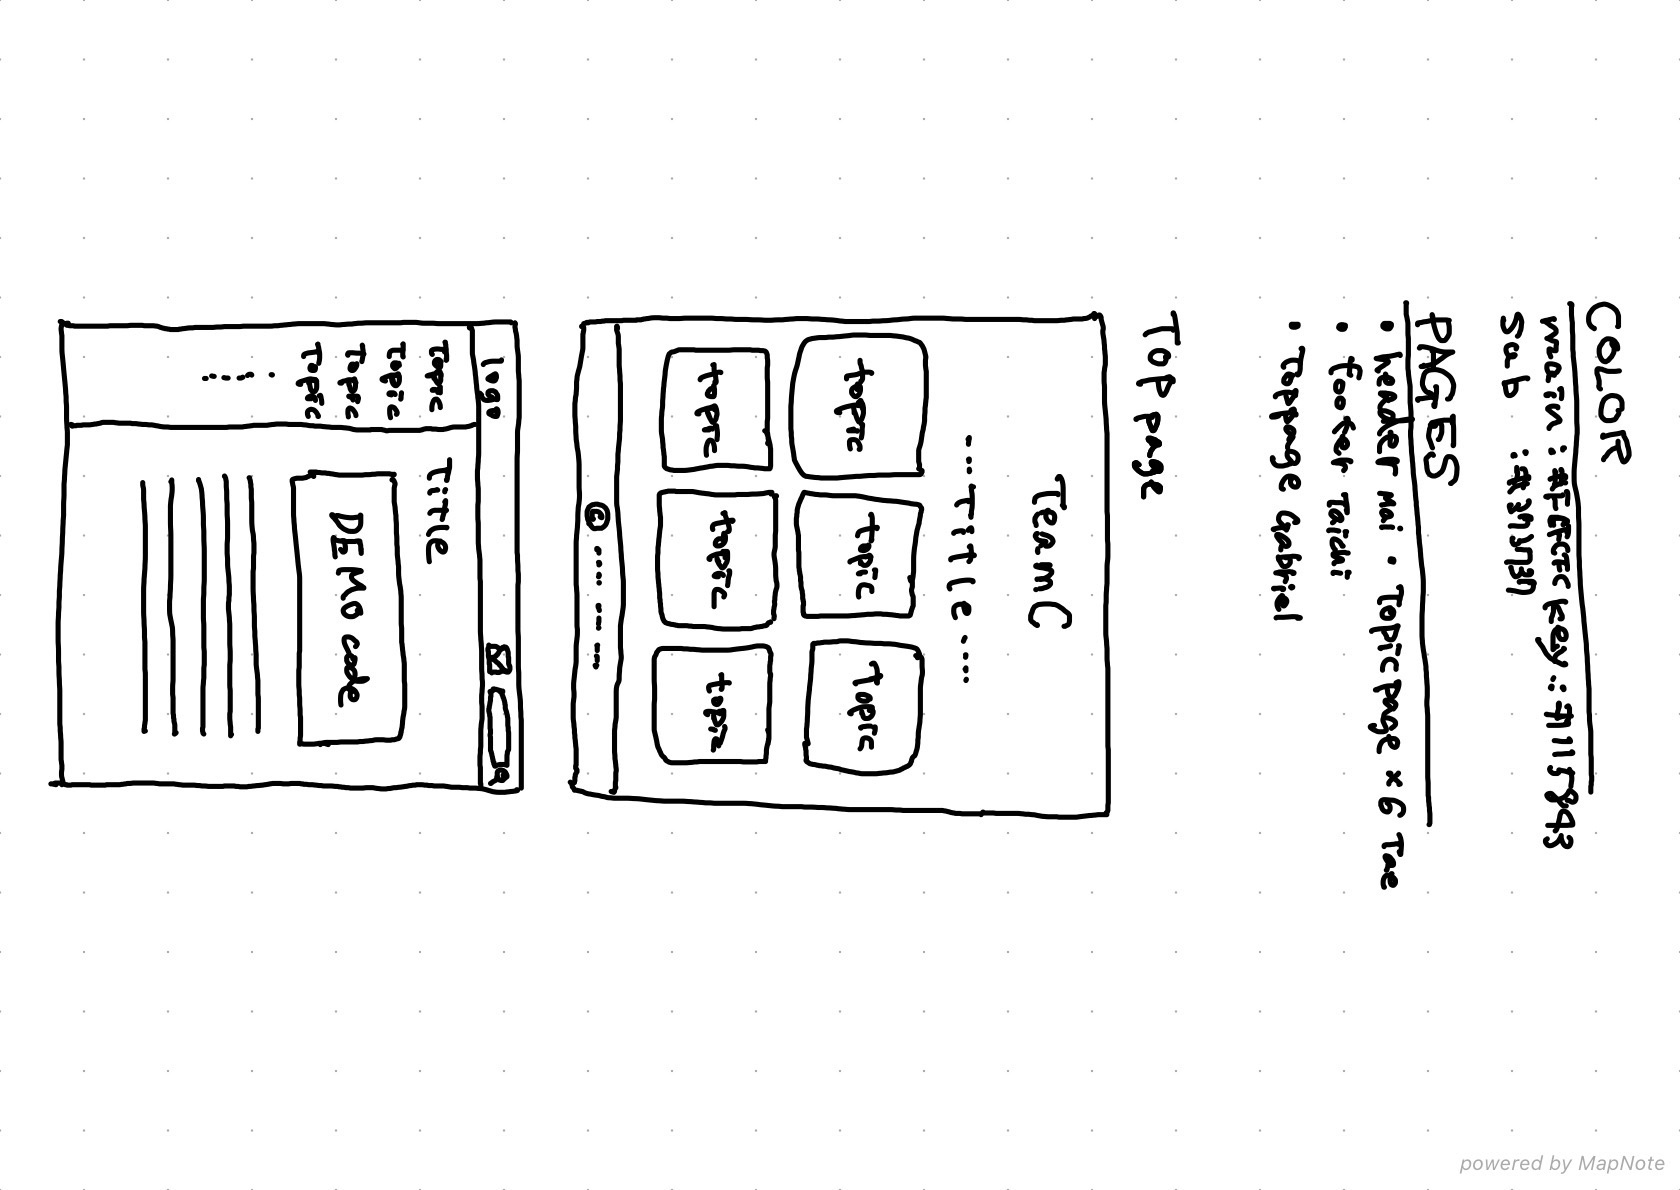 COLOR
main : #FCFCFC key : #115843
sub : #373737
PAGES
• header Mai • Topic page × 6 Tae
• footer Taichi
• Toppage Gabriel
Top page
Team C
--- Title ----
topic topic Topic
topic topic topic
© ---- --- ---
logo
Topic
Topic
Topic
Topic
Title
DEMO code
powered by MapNote